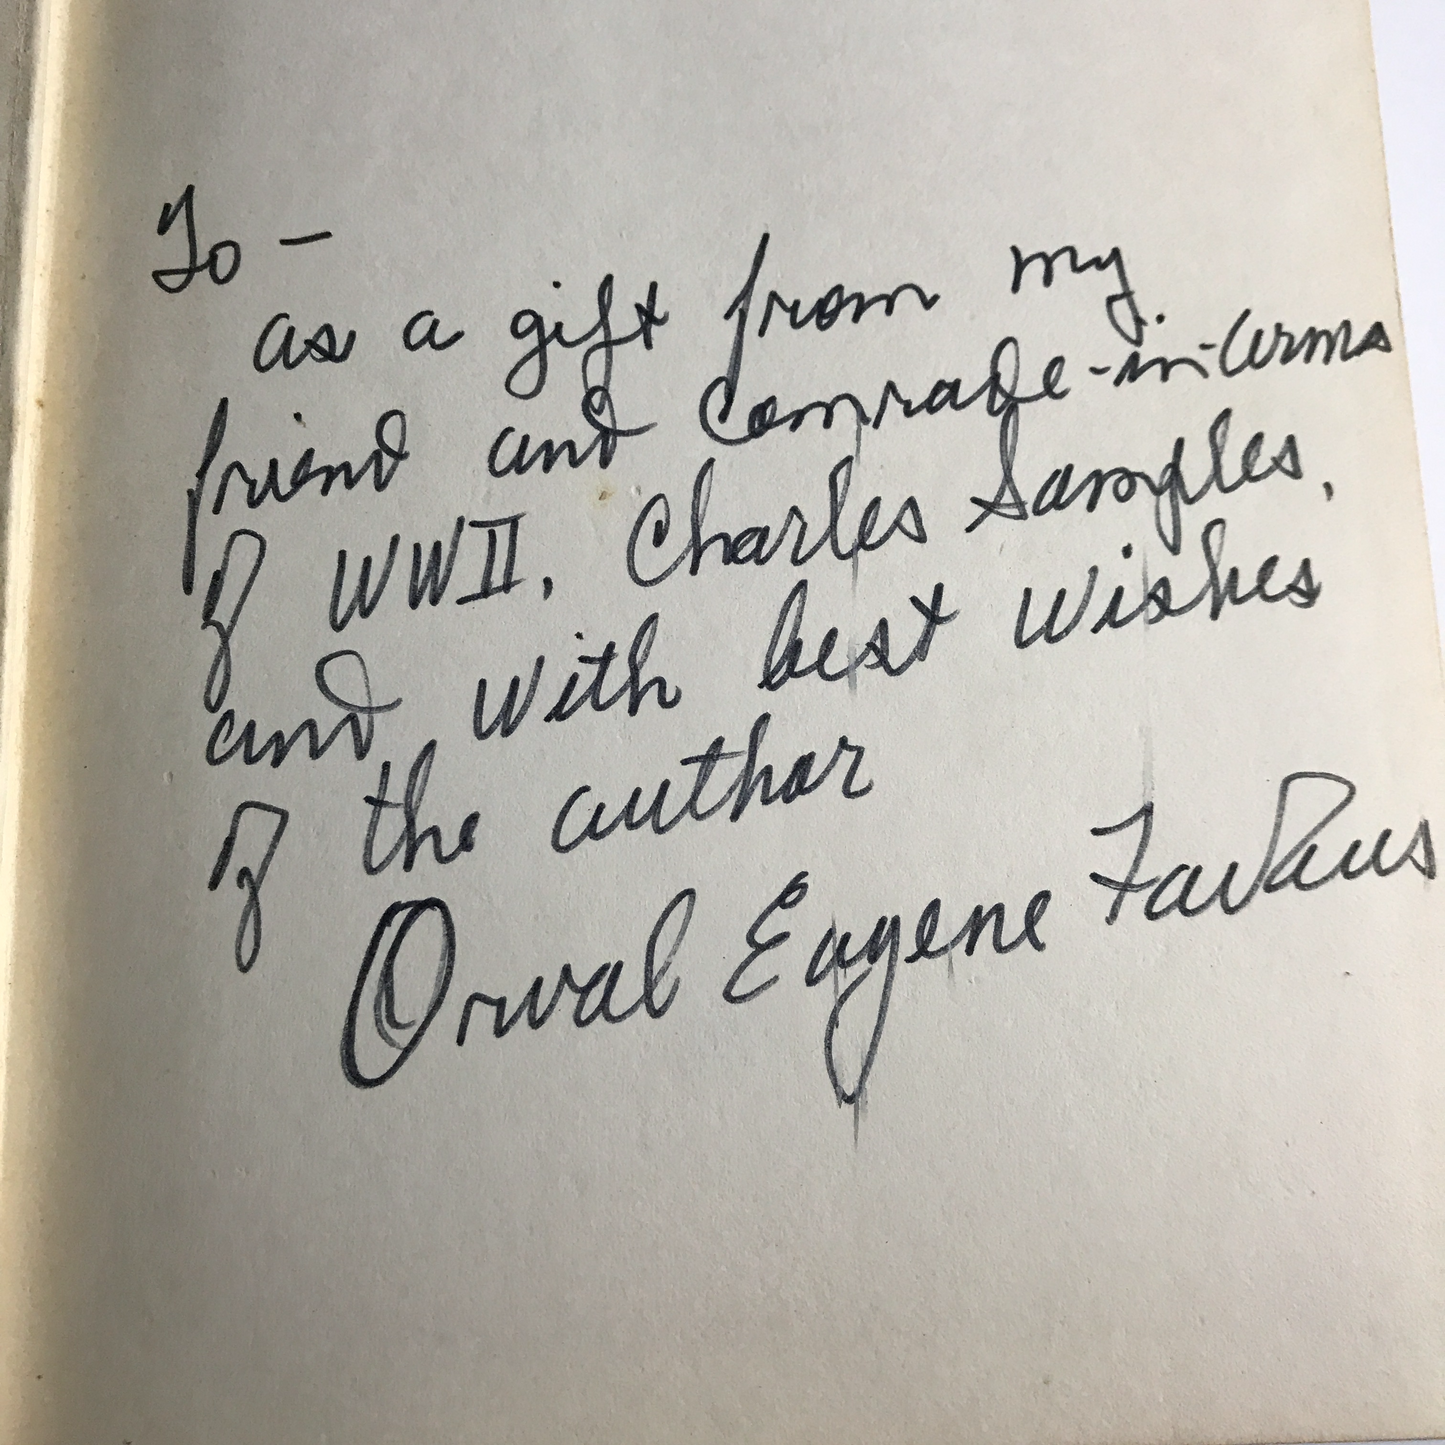 To –
as a gift from my
friend and Comrade-in-Arms
of WWII, Charles Samples,
and with best wishes
of the author
Orval Eugene Faubus